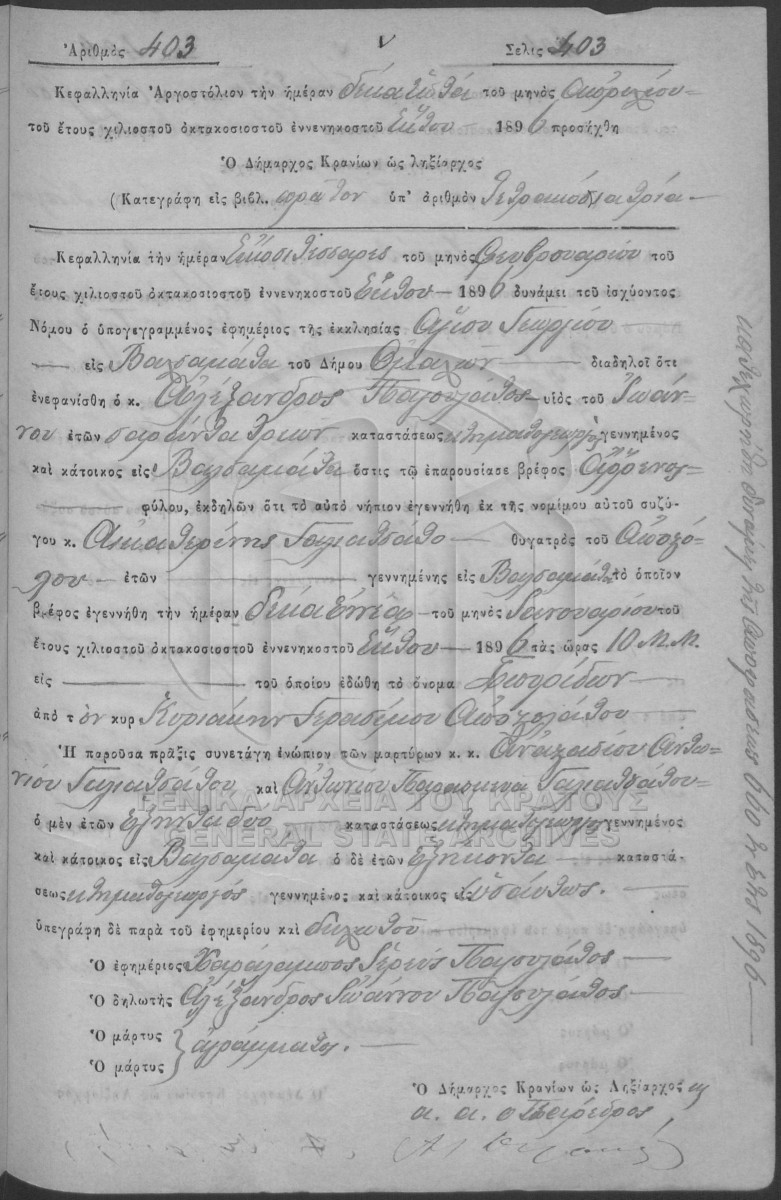 Ἀριθμὸς 403 Σελὶς 403
Κεφαλληνία Ἀργοστόλιον τὴν ἡμέραν δεκα ἑπτά τοῦ μηνὸς Ἀπριλίου
τοῦ ἔτους χιλιοστοῦ ὀκτακοσιοστοῦ ἐννενηκοστοῦ Ἕκτου 1896 προσήχθη
Ὁ Δήμαρχος Κρανίων ὡς ληξίαρχος
(Κατεγράφη εἰς βιβλ. πρῶτον ὑπ' ἀριθμὸν Τετρακόσια τρία
Κεφαλληνία τὴν ἡμέραν Εἴκοσι τέσσαρες τοῦ μηνὸς Φευβρουαρίου τοῦ
ἔτους χιλιοστοῦ ὀκτακοσιοστοῦ ἐννενηκοστοῦ Ἕκτου 1896 δυνάμει τοῦ ἰσχύοντος
Νόμου ὁ ὑπογεγραμμένος ἐφημέριος τῆς ἐκκλησίας Ἁγίου Γεωργίου
εἰς Βαλσαμάτα τοῦ Δήμου Ὁμαλῶν διαδηλοῖ ὅτι
ἐνεφανίσθη ὁ κ. Ἀλέξανδρος Παγουλάτος υἱὸς τοῦ Ἰωάν-
νου ἐτῶν σαράντα τριων καταστάσεως κτηματογεωργός γεννημένος
καὶ κάτοικος εἰς Βαλσαμάτα ὅστις τῷ ἐπαρουσίασε βρέφος Ἄῤῥενος
φύλου, ἐκδηλῶν ὅτι τὸ αὐτὸ νήπιον ἐγεννήθη ἐκ τῆς νομίμου αὐτοῦ συζύ-
γου κ. Αἰκατερίνης Γαλιατσάτο θυγατρὸς τοῦ Ἀποστό-
λου ἐτῶν γεννημένης εἰς Βαλσαμάτα τὸ ὁποῖον
βρέφος ἐγεννήθη τὴν ἡμέραν δέκα ἐννέα τοῦ μηνὸς Ἰανουαρίου τοῦ
ἔτους χιλιοστοῦ ὀκτακοσιοστοῦ ἐννενηκοστοῦ Ἕκτου 1896 τὰς ὥρας 10 Μ.Μ.
εἰς τοῦ ὁποίου ἐδώθη τὸ ὄνομα Σπυρίδων
ἀπὸ τ ὸν κυρ Κυριάκην Γερασίμου Ἀποστολάτου
Ἡ παροῦσα πρᾶξις συνετάγη ἐνώπιον τῶν μαρτύρων κ. κ. Ἀναστασίου Ἀντω-
νίου Γαλιατσάτου καὶ Ἀντωνίου Γαλιατσάτου
ΓΕΝΙΚΑ ΑΡΧΕΙΑ ΤΟΥ ΚΡΑΤΟΥΣ
ὁ μὲν ἐτῶν ἑξήντα δύο καταστάσεως κτηματογεωργός γεννημένος
GENERAL STATE ARCHIVES
καὶ κάτοικος εἰς Βαλσαμάτα ὁ δὲ ἐτῶν Ἑξήκοντα καταστά-
σεως κτηματογεωργός γεννημένος καὶ κάτοικος εἰς ὡσαύτως.
ὑπεγράφη δὲ παρὰ τοῦ ἐφημερίου καὶ δηλωτοῦ
Ὁ ἐφημέριος Χαράλαμπος Ἱερεύς Παγουλάτος
Ὁ δηλωτὴς Ἀλέξανδρος Ἰωάννου Παγουλάτος
Ὁ μάρτυς
Ὁ μάρτυς } ἀγράμματοι.
Ὁ Δήμαρχος Κρανίων ὡς Ληξίαρχος
α. α. ὁ Πάρεδρος
καταχωρηθη δυνάμει τῆς ἀποφάσεως 660 1896